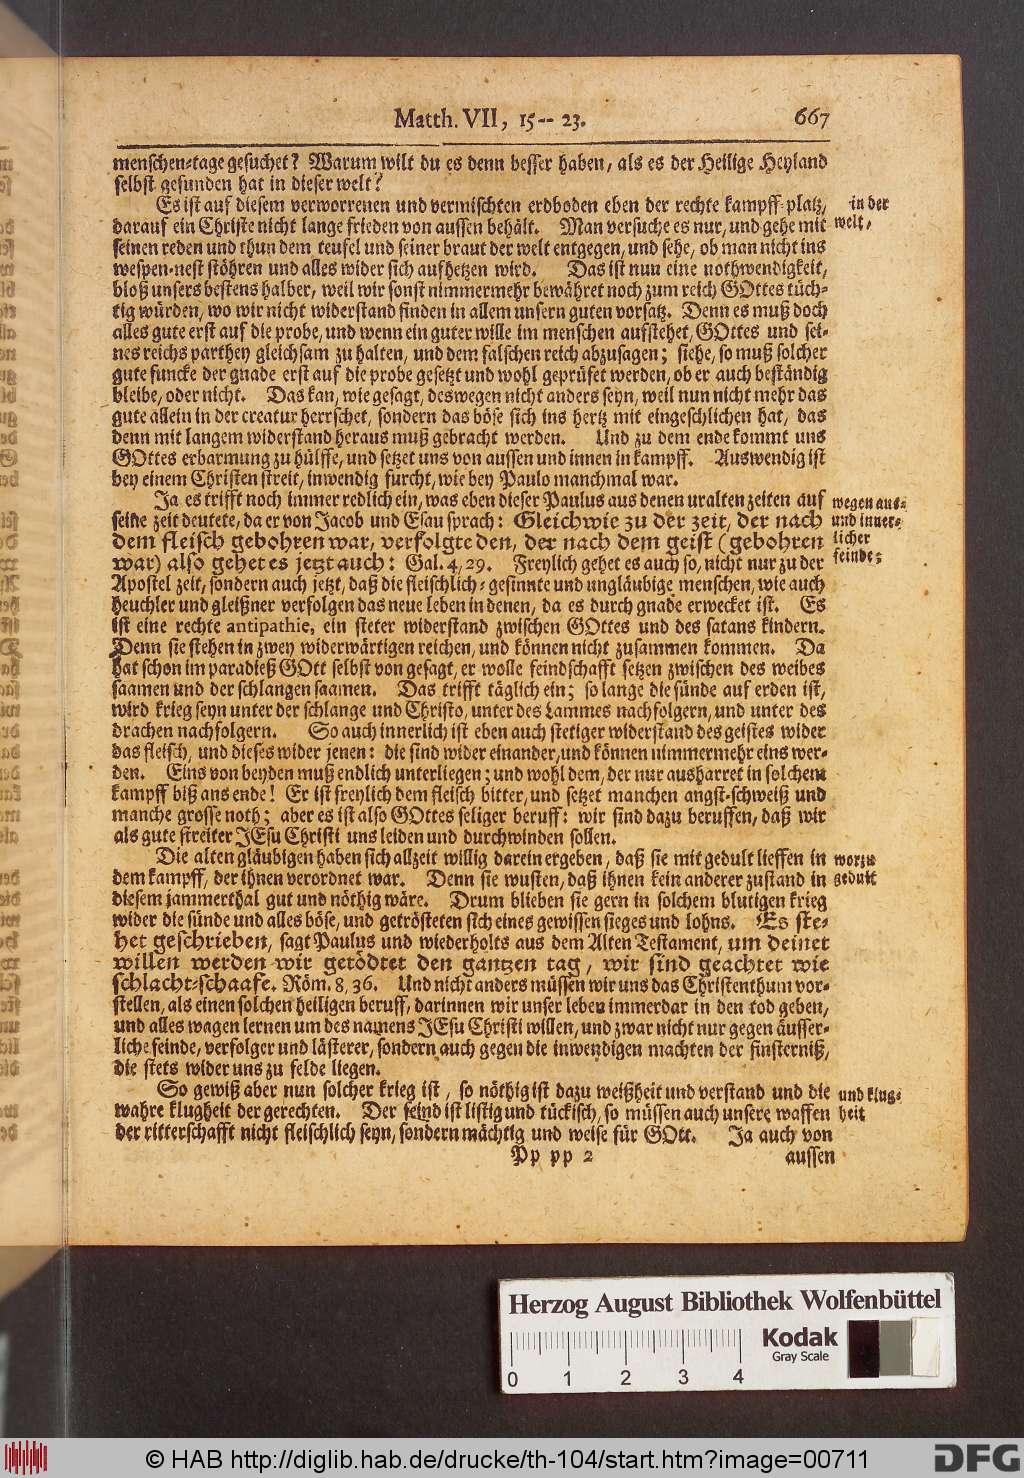 Matth. VII, 15-- 23. 667
menschen-tage gesuchet? Warum wilt du es denn besser haben, als es der Heilige Heyland
selbst gesunden hat in dieser welt?
Es ist auf diesem verworrenen und vermischten erdboden eben der rechte kampff-platz,
in der
darauf ein Christe nicht lange frieden von aussen behält. Man versuche es nur, und gehe mit
welt,
seinen reden und thun dem teufel und seiner braut der welt entgegen, und sehe, ob man nicht ins
wespen-nest stöhren und alles wider sich aufhetzen wird. Das ist nun eine nothwendigkeit,
bloß unsers bestens halber, weil wir sonst nimmermehr bewähret noch zum reich GOttes tüch-
tig würden, wo wir nicht widerstand finden in allem unsern guten vorsatz. Denn es muß doch
alles gute erst auf die probe, und wenn ein guter wille im menschen aufstehet, GOttes und sei-
nes reichs parthey gleichsam zu halten, und dem falschen reich abzusagen; siehe, so muß solcher
gute funcke der gnade erst auf die probe gesetzt und wohl geprüfet werden, ob er auch beständig
bleibe, oder nicht. Das kan, wie gesagt, deswegen nicht anders seyn, weil nun nicht mehr das
gute allein in der creatur herrschet, sondern das böse sich ins hertz mit eingeschlichen hat, das
denn mit langem widerstand heraus muß gebracht werden. Und zu dem ende kommt uns
GOttes erbarmung zu hülffe, und setzet uns von aussen und innen in kampff. Auswendig ist
bey einem Christen streit, inwendig furcht, wie bey Paulo manchmal war.
Ja es trifft noch immer redlich ein, was eben dieser Paulus aus denen uralten zeiten auf
wegen aus-
seine zeit deutete, da er von Jacob und Esau sprach: Gleichwie zu der zeit, der nach
und inner-
dem fleisch gebohren war, verfolgte den, der nach dem geist (gebohren
licher
war) also gehet es jetzt auch: Gal. 4, 29. Freylich gehet es auch so, nicht nur zu der
feinde;
Apostel zeit, sondern auch jetzt, daß die fleischlich-gesinnte und ungläubige menschen, wie auch
heuchler und gleißner verfolgen das neue leben in denen, da es durch gnade erwecket ist. Es
ist eine rechte antipathie, ein steter widerstand zwischen GOttes und des satans kindern.
Denn sie stehen in zwey widerwärtigen reichen, und können nicht zusammen kommen. Da
hat schon im paradieß GOtt selbst von gesagt, er wolle feindschafft setzen zwischen des weibes
saamen und der schlangen saamen. Das trifft täglich ein; so lange die sünde auf erden ist,
wird krieg seyn unter der schlange und Christo, unter des Lammes nachfolgern, und unter des
drachen nachfolgern. So auch innerlich ist eben auch stetiger widerstand des geistes wider
das fleisch, und dieses wider jenen: die sind wider einander, und können nimmermehr eins wer-
den. Eins von beyden muß endlich unterliegen; und wohl dem, der nur ausharret in solchem
kampff biß ans ende! Er ist freylich dem fleisch bitter, und setzet manchen angst-schweiß und
manche grosse noth; aber es ist also GOttes seliger beruff: wir sind dazu beruffen, daß wir
als gute streiter JEsu Christi uns leiden und durchwinden sollen.
Die alten gläubigen haben sich allzeit willig darein ergeben, daß sie mit gedult lieffen in
worzu
dem kampff, der ihnen verordnet war. Denn sie wusten, daß ihnen kein anderer zustand in
gedult
diesem jammerthal gut und nöthig wäre. Drum blieben sie gern in solchem blutigen krieg
wider die sünde und alles böse, und getrösteten sich eines gewissen sieges und lohns. Es ste-
het geschrieben, sagt Paulus und wiederholts aus dem Alten Testament, um deinet
willen werden wir getödtet den gantzen tag, wir sind geachtet wie
schlacht-schaafe. Röm. 8, 36. Und nicht anders müssen wir uns das Christenthum vor-
stellen, als einen solchen heiligen beruff, darinnen wir unser leben immerdar in den tod geben,
und alles wagen lernen um des namens JEsu Christi willen, und zwar nicht nur gegen äusser-
liche feinde, verfolger und lästerer, sondern auch gegen die inwendigen machten der finsterniß,
die stets wider uns zu felde liegen.
So gewiß aber nun solcher krieg ist, so nöthig ist dazu weißheit und verstand und die
und klug-
wahre klugheit der gerechten. Der feind ist listig und tückisch, so müssen auch unsere waffen
heit
der ritterschafft nicht fleischlich seyn, sondern mächtig und weise für GOtt. Ja auch von
Pp pp 2 aussen
Herzog August Bibliothek Wolfenbüttel
Kodak
Gray Scale
0 1 2 3 4
© HAB http://diglib.hab.de/drucke/th-104/start.htm?image=00711
DFG